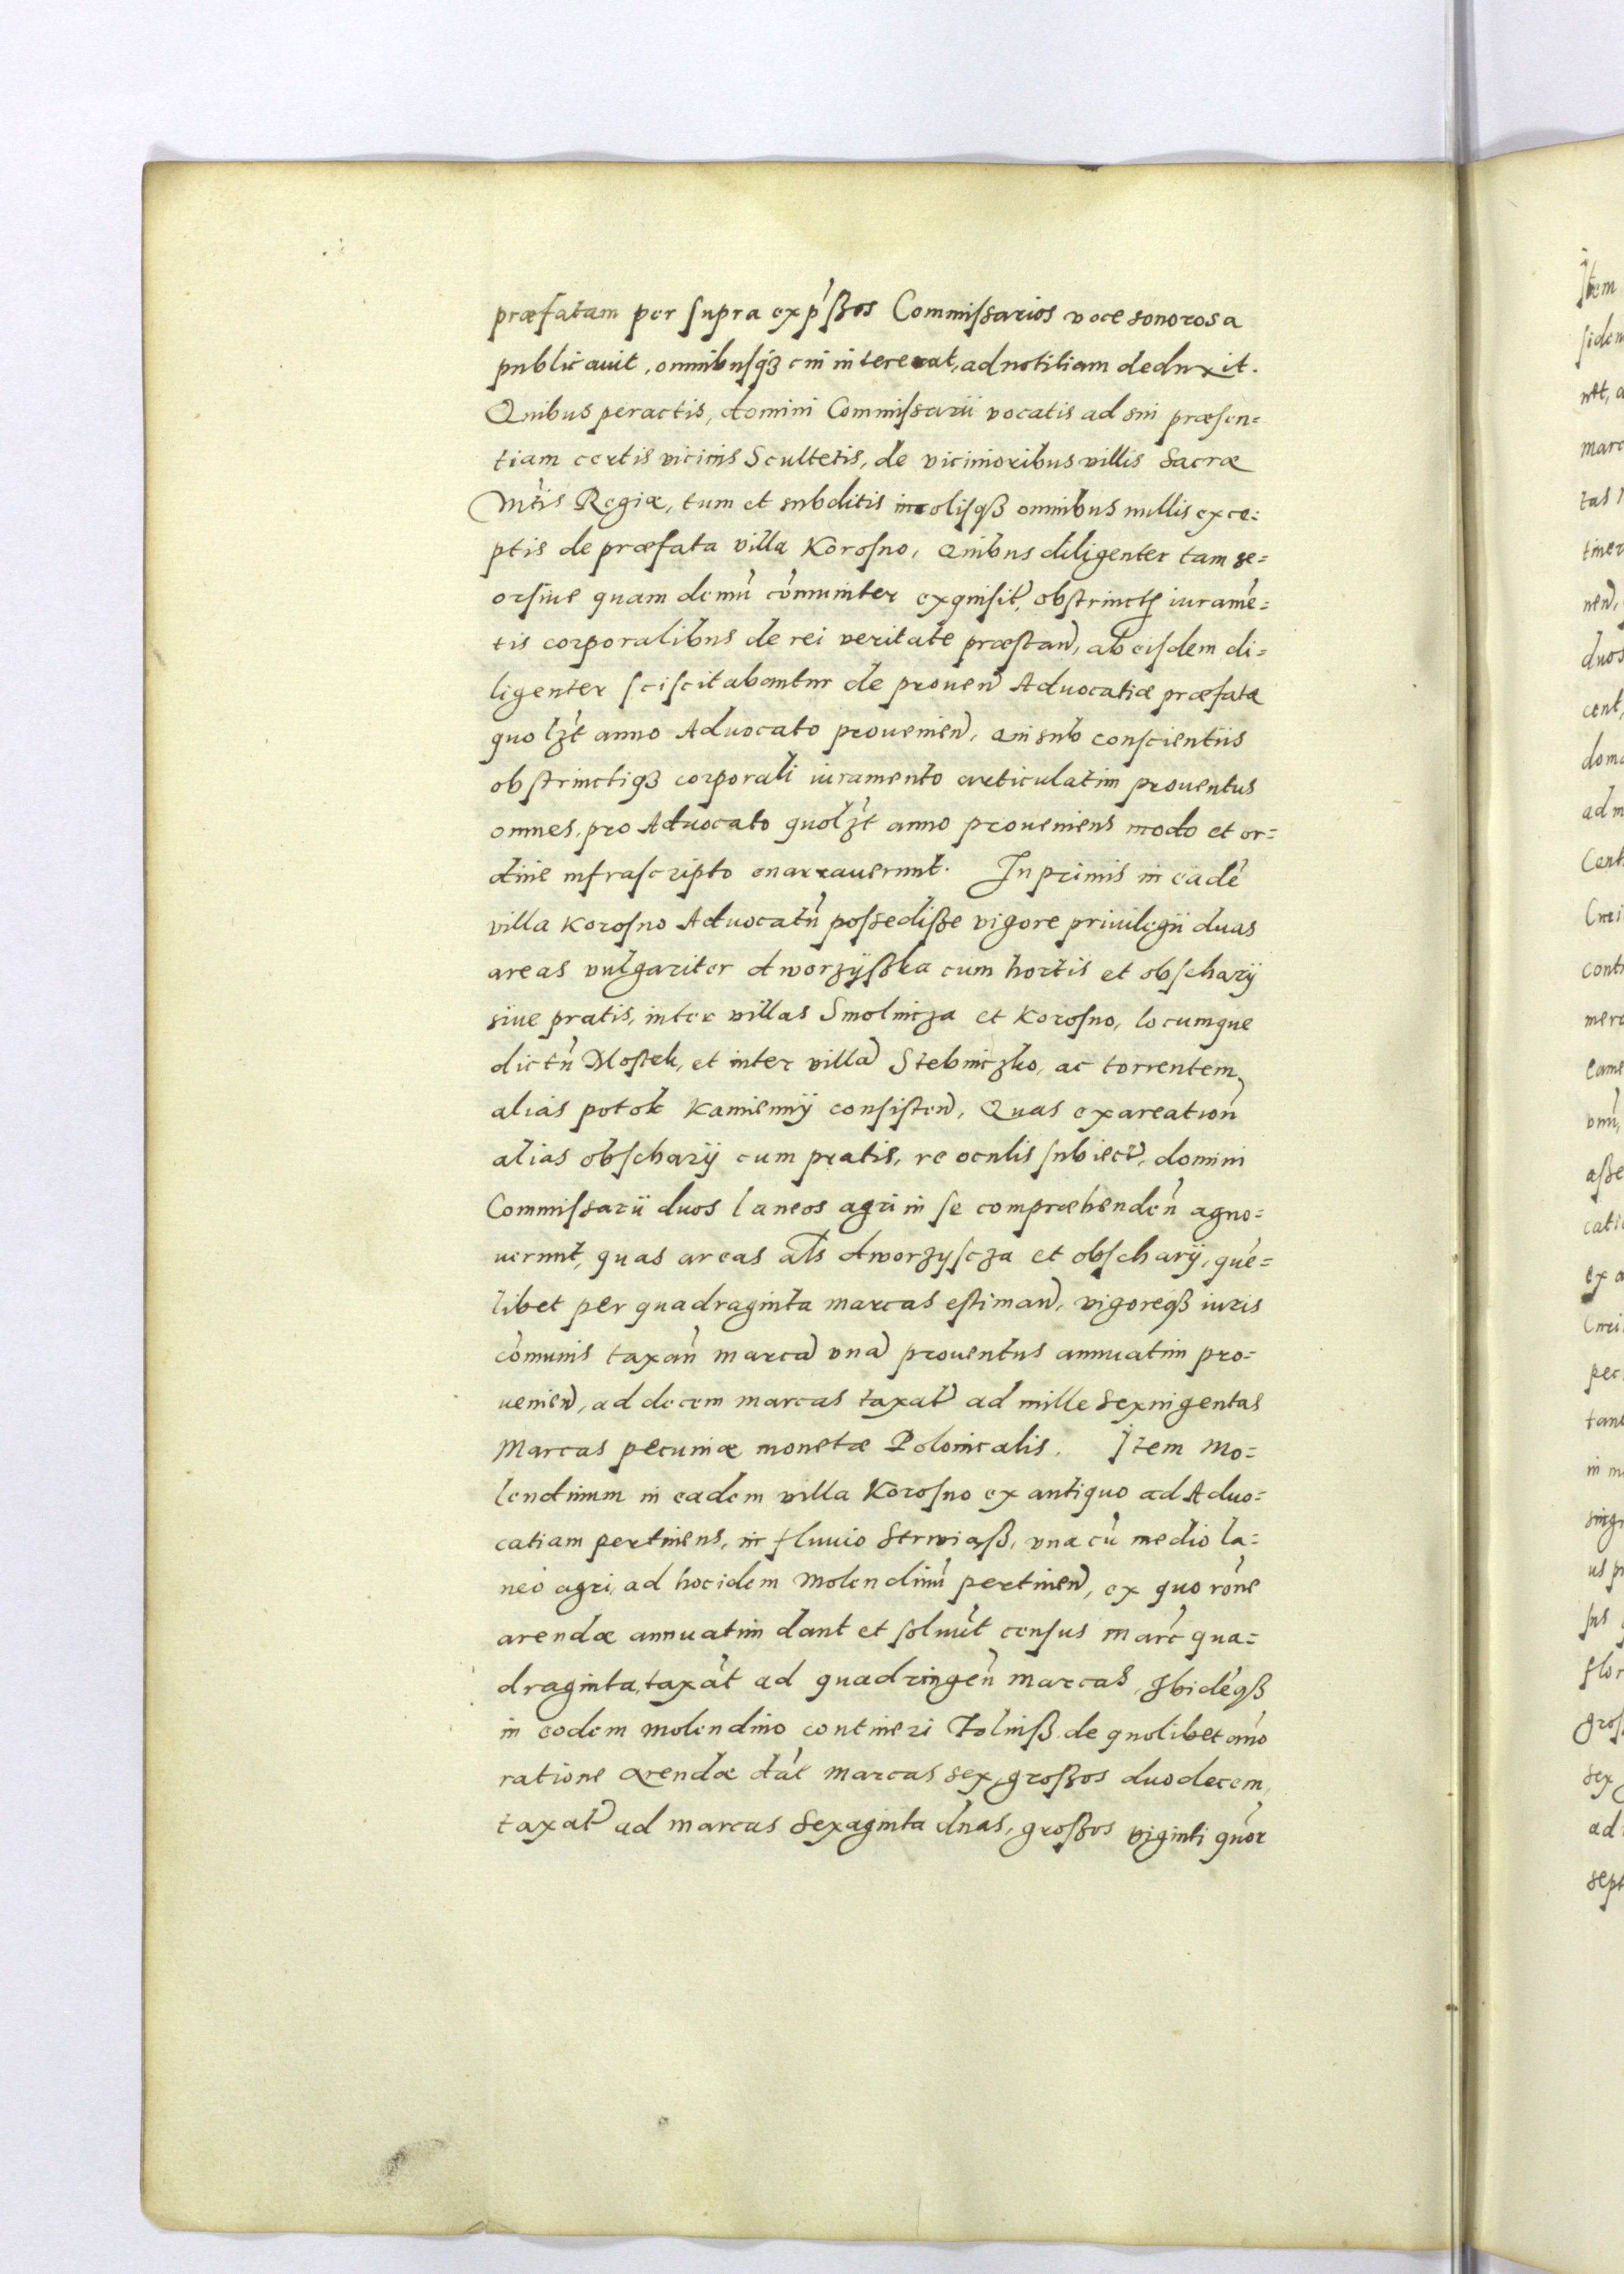 præfatam per supra exp̀ßos Commissarios voce sonorosa
publicauit, omnibusq́ꝫ cui intererat, ad notitiam deduxit.
Quibus peractis, domini Commissarii vocatis ad sui præsen=
tiam certis vicinis Scultetis, de vicinioribus villis Sacræ
Mtis Regiæ, tum et subditis incolisqꝫ omnibus nullis exce=
ptis de præfata villa Korosno, Quibus diligenter tam se=
orsiue quam demũ cõmuniter exquisit̃, obstrinctis iuramẽ=
tis corporalibus de rei veritate præstand̃, ab eisdem di=
ligenter sciscitabantur de prouen̄ Aduocatiæ præfatæ
quolꝫt anno Aduocato prouenien̄, Qui sub conscientiis
obstrinctiqꝫ corporali iuramento articulatim prouentus
omnes, pro Aduocato quolꝫt anno proueniens modo et or=
dine infrascripto enarrauerunt. In primis in eadẽ
villa Korosno Aduocatũ possedisse vigore priuilegii duas
areas vulgariter dworzÿßka cum hortis et obscharÿ
siue pratis, inter villas Smolnicza et Korosno, locumque
dictũ Mostek, et inter villã Stebniczko, ac torrentem,
alias potok Kamiennÿ consisten̄, Quas exareation̄
alias obscharÿ cum pratis, re oculis subiect̃, domini
Commissarii duos laneos agri in se compræhenden̄ agno=
uerunt, quas areas als dworzyscza et obscharÿ, que=
libet per quadraginta marcas estiman̄, vigoreqꝫ iuris
cõmunis taxan̄ marcã vnã prouentus annuatim pro=
uenien̄, ad decem marcas taxat̃ ad mille sexingentas
Marcas pecuniæ monetæ Polonicalis. Item Mo=
lendinum in eadem villa Korosno ex antiquo ad Aduo=
catiam pertinens, in fluuio Strwiąß, vna cũ medio la=
neo agri, ad hoc idem Molendinũ pertinen̄, ex quo rõne
arendæ annuatim dant et soluũt census marc̃ qua=
draginta, taxãt ad quadringen̄ marcas, Ibidẽqꝫ
in eodem molendino contineri folusß de quolibet ãno
ratione arendæ dãt marcas sex, großos duodecem,
taxat̃ ad marcas sexaginta duas, großos viginti quõr